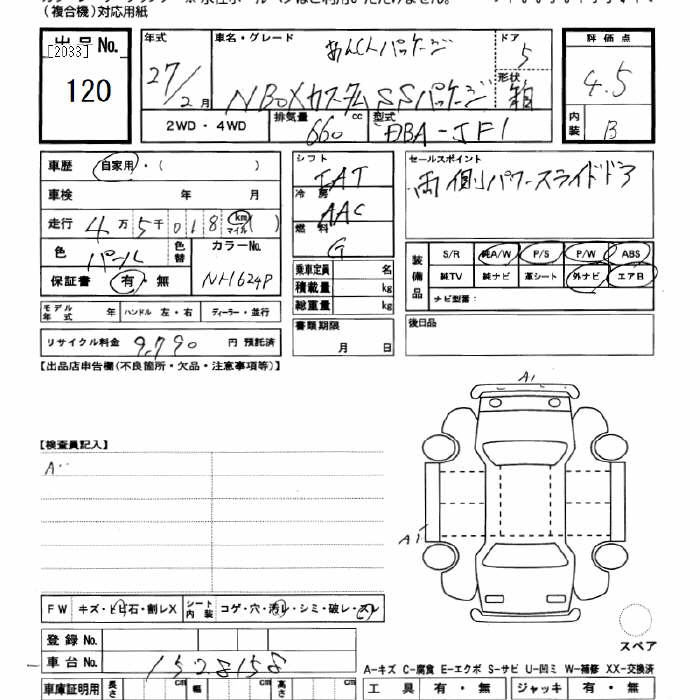 (複合機)対応用紙
出品No.
[2033]
120
年式
27/2月
車名・グレード
あんしんパッケージ
NBOXカスタムSSパッケージ
ドア
5
形状
箱
2WD・4WD
排気量
660
cc
型式
DBA-JF1
評価点
4.5
内装
B
車歴
自家用・( )
車検 年 月
走行 4万5千018 km マイル ( )
色
パール
色替
カラーNo.
NH624P
保証書
有・無
モデル年式 年
ハンドル 左・右
ディーラー・並行
リサイクル料金 9,790 円 預託済
シフト
IAT
冷房
AAC
燃料
G
乗車定員 名
積載量 kg
総重量 kg
書類期限
月 日
セールスポイント
両側パワースライドドア
装備品
S/R 純A/W P/S P/W ABS
純TV 純ナビ 革シート 外ナビ エアB
ナビ型番:
後日品
【出品店申告欄(不良箇所・欠品・注意事項等)】
【検査員記入】
A
A1
A1
FW キズ・ヒビ石・割レX
シート内装 コゲ・穴・汚レ・シミ・破レ・スレ
登録No.
車台No. 1528158
車庫証明用 長さ cm 幅 cm 高さ cm
スペア
A-キズ C-腐食 E-エクボ S-サビ U-凹ミ W-補修 XX-交換済
工具 有・無 ジャッキ 有・無